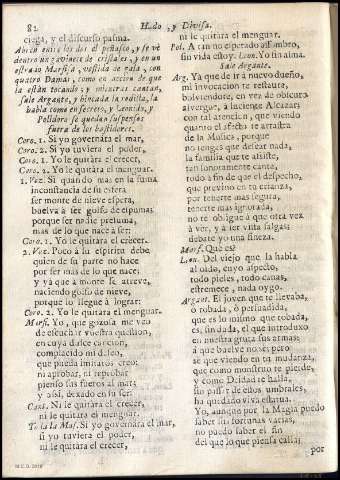 82 Hado, y Divisa.
ciega, y el discurso pasma.
Abrese entre los dos el peñasco, y se vè
dentro un gavinete de cristales, y en un
estrado Marfisa, vestida de gala, con
quatro Damas, como en accion de que
la estàn tocando; y mientras cantan,
sale Argante, y hincada la rodilla, la
habla como en secreto, y Leonido, y
Polidoro se quedan suspensos
fuera de los bastidores.
Coro. 1. Si yo governàra el mar,
Coro. 2. Si yo tuviera el poder,
Coro. 1. Yo le quitàra el crecer,
Coro. 2. Yo le quitàra el menguar.
1. Voz. Si quando mas en la suma
inconstancia de su esfera
ser monte de nieve espera,
buelva à ser golfo de espumas,
porque ser nadie presuma,
mas de lo que nace à ser:
Coro. 1. Yo le quitàra el crecer.
2. Voz. Poco à su espiritu debe
quien de su parte no hace
por ser mas de lo que nace;
y yà que à monte se atreve,
naciendo golfo de nieve,
porque lo llegue à lograr:
Coro. 2. Yo le quitàra el menguar.
Marf. Yo, que gozosa me veo
de escuchar vuestra question,
en cuya dulce cancion,
complacido mi deseo,
que pueda imitaros creo:
ni aprobar, ni reprobar
pienso sus fueros al mar;
y assi, dexado en su ser:
Cant. Ni le quitàra el crecer,
ni le quitàra el menguar.
Toda la Mus. Si yo governàra el mar,
si yo tuviera el poder,
ni le quitàra el crecer,
ni le quitàra el menguar.
Pol. A tan no esperado assombro,
sin vida estoy. Leon. Yo sin alma.
Sale Argante.
Arg. Ya que de ir à nuevo dueño,
mi invocacion te restaura,
bolviendote, en vez de obscuro
alvergue, à luciente Alcazar;
con tal atencion, que viendo
quanto el afecto te arrastra
de la Musica, porque
no tengas que desear nada,
la familia que te assiste,
tan sonoramente canta,
todo à fin de que el despecho,
que previno en tu crianza,
por tenerte mas segura,
tenerte mas ignorada,
no te obligue à que otra vez
à vèr, y à ser vista salgas;
debate yo una fineza.
Marf. Què es?
Leon. Del viejo que la habla
al oìdo, cuyo aspecto,
todo pieles, todo canas,
estremece, nada oygo.
Argant. El joven que te llevaba,
ò robada, ò persuadida,
que es lo mismo que robada,
es, sin dada, el que introduxo
en nuestra gruta sus armas:
à què buelve no sè; pero
sè que viendo en tu mudanza,
que como monstruo te pierde,
y como Deidad te halla,
sin passar de estos umbrales,
ha quedado viva estatua.
Yo, aunque por la Magia puedo
saber sus fortunas varias,
no puedo saber el fin
del que lo que piensa calla;
por